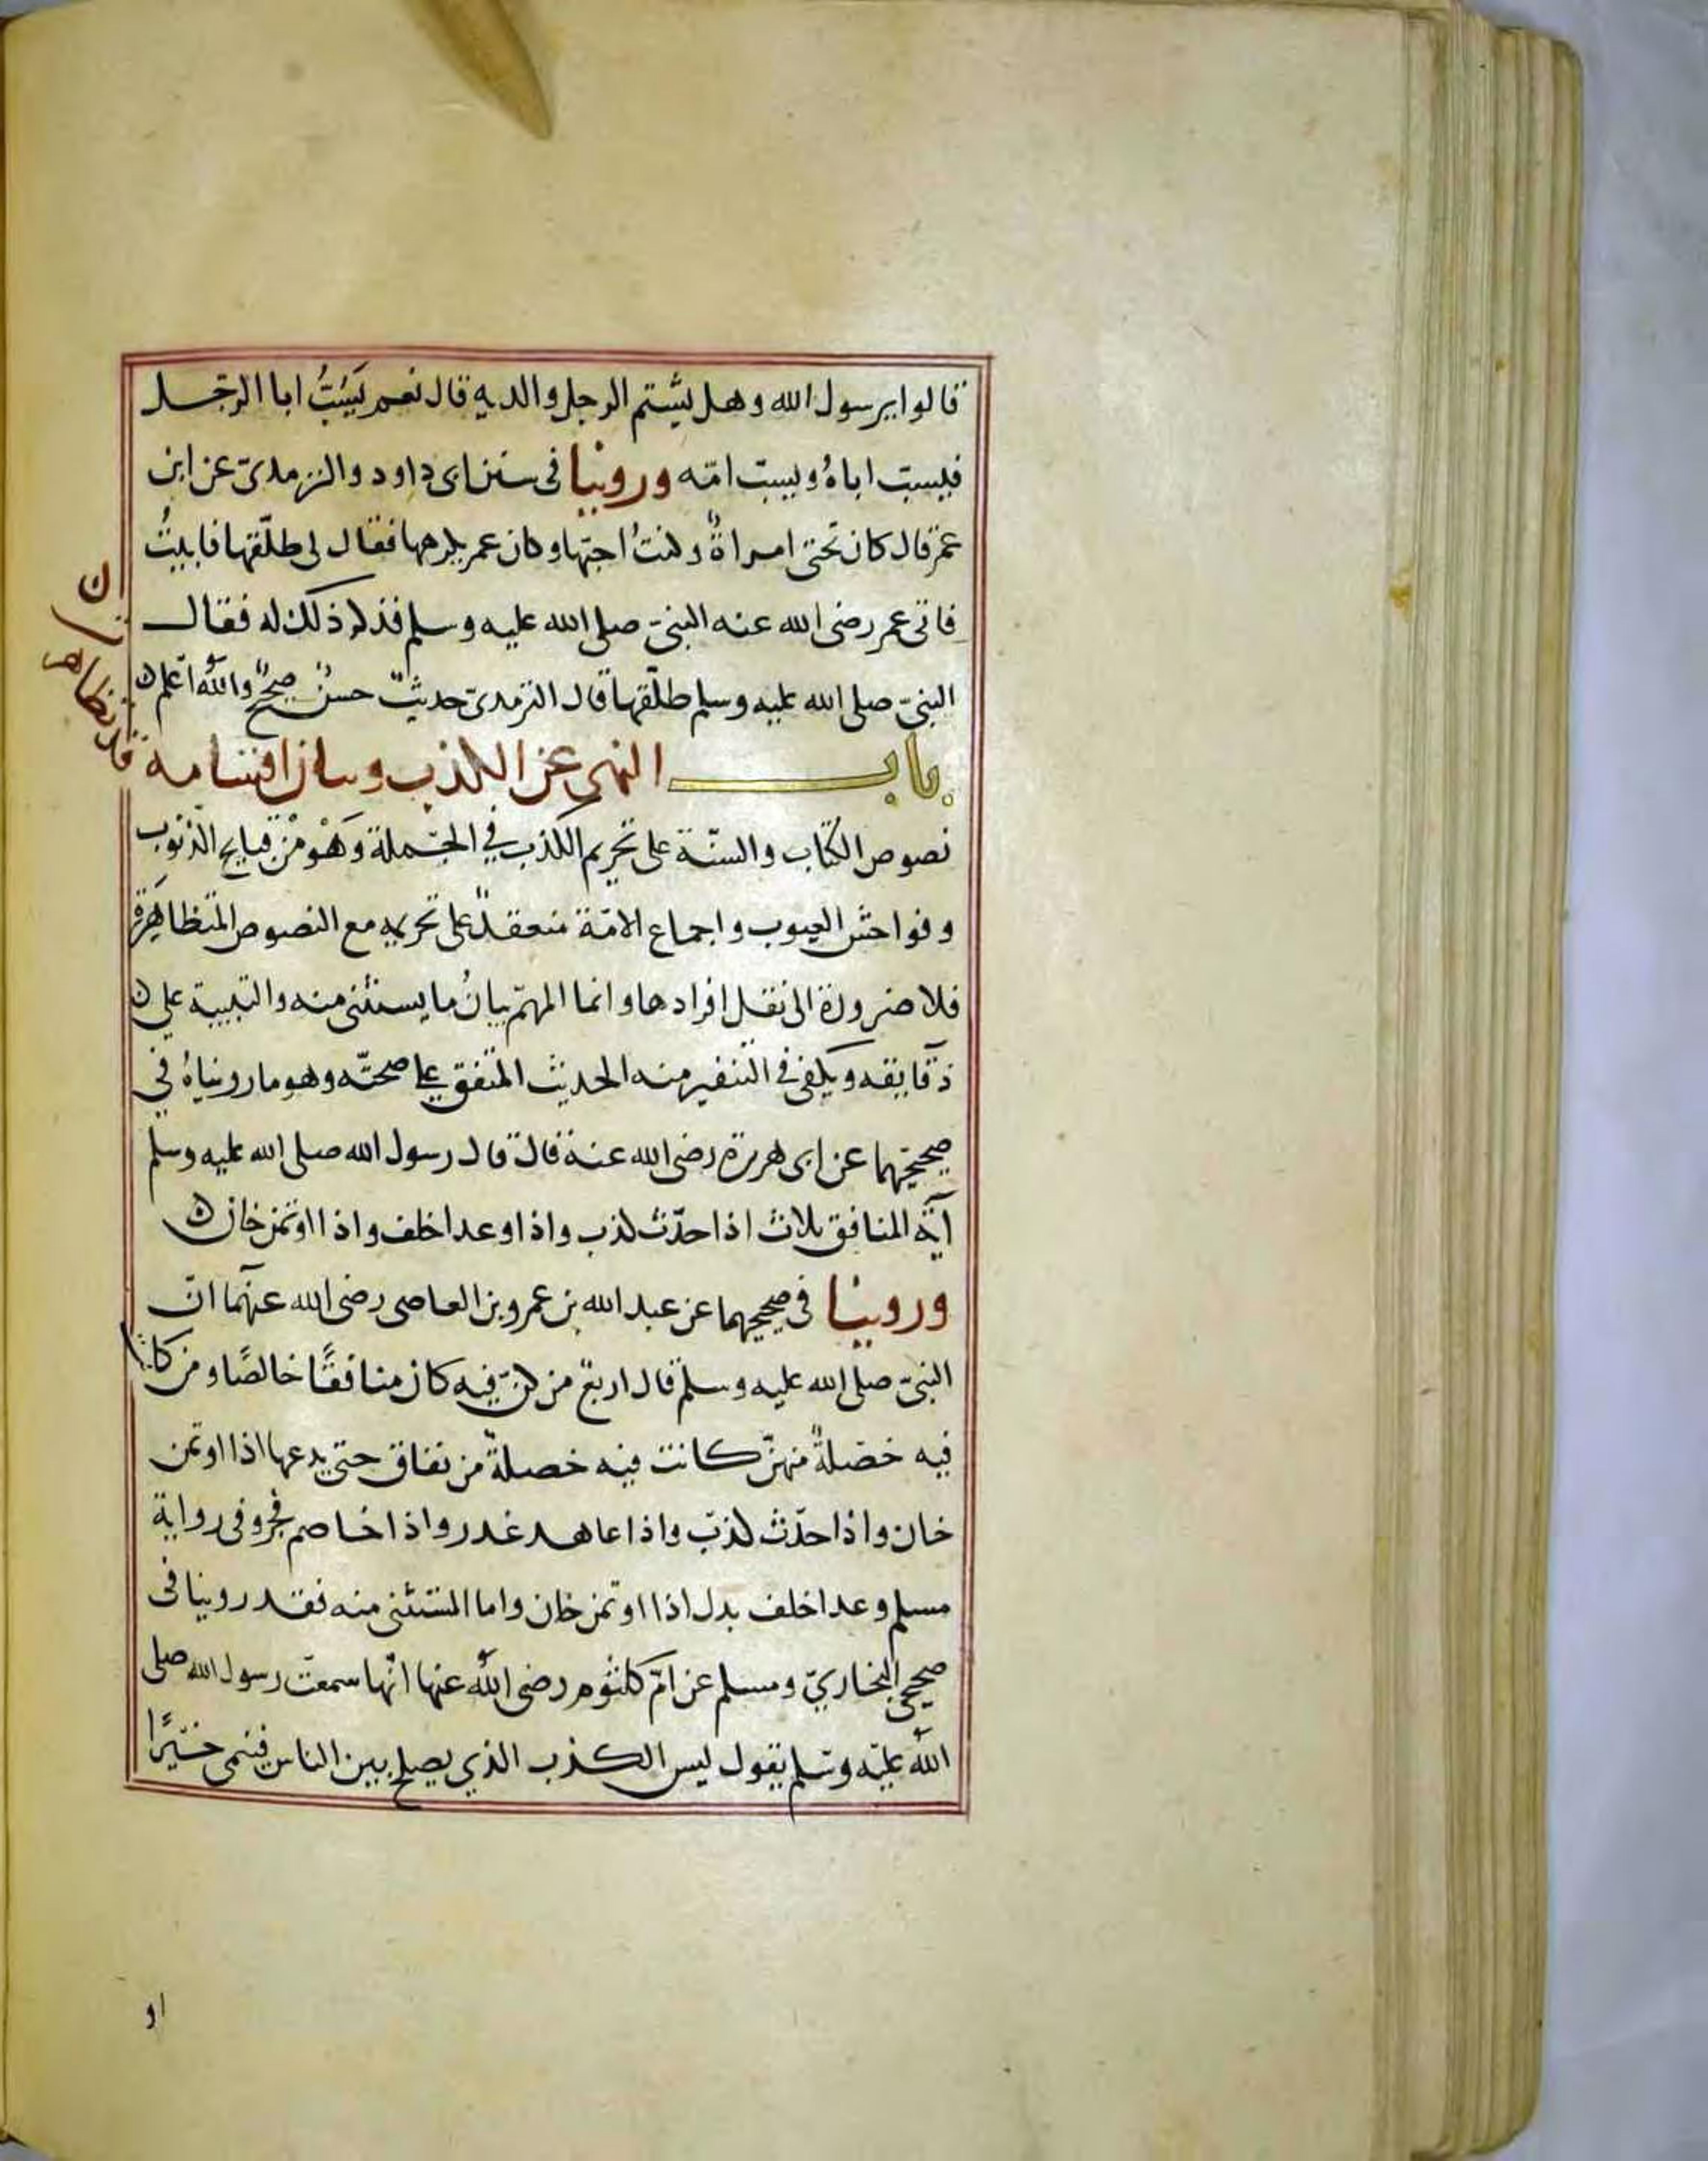 قالوا يرسول الله وهل يشتم الرجل والديه قال نعم يَسُبُّ ابا الرجل
فيسب اباهُ ويسب امّه وروينا فى سنن ابى داود والترمدى عن ابن
عمر قال كان تحتى امراةٌ وكنتُ احبّها وكان عمر يكرهها فقال لى طلّقها فابيتُ
فاتى عمر رضى الله عنه النبىّ صلى الله عليه وسلم فذكر ذلك له فقال
النبىّ صلى الله عليه وسلم طلّقها قال الترمدى حديثٌ حسنٌ صحيحٌ والله اعلم ن
باب النهى عن الكذب وبيان اقسامه قد تظاهرت
نصوص الكتاب والسنّة على تحريم الكذب في الجملة وَهْو مْن قبايح الذنوب
وفواحش العيوب واجماع الامّة منعقدٌ على تحريمه مع النصوص المتظاهِرة
فلا ضرورة الى نقل افرادها وانما المهمّ بيانُ ما يستثنى منه والتنبيه على ن
دقايقه ويكفى فى التنفير منه الحديث المتفق على صحتّه وهو ما رويناهُ في
صحيحيهما عن ابى هريرة رضى الله عنه قال قال رسول الله صلى الله عليه وسلم
آية المنافق ثلاث اذا حدّث كذب واذا وعد اخلف واذا اوتمن خان ن
وروينا فى صحيحيهما عن عبد الله بن عمرو بن العاصى رضى الله عنهما انّ
النبىّ صلى الله عليه وسلم قال اربعٌ من كنّ فيه كان منافقًا خالصًا ومن كانت
فيه خصلةٌ منهنّ كانت فيه خصلةٌ من نفاق حتى يدعها اذا اوتمن
خان واذا حدّث كذب واذا عاهد غدر واذا خاصم فجر وفى رواية
مسلم وعد اخلف بدل اذا اوتمن خان واما المستثنى منه فقد روينا فى
صحيحى البخاريّ ومسلم عن امّ كلثوم رضى الله عنها انّها سمعت رسول الله صلى
الله عليه وسلم يقول ليس الكذب الذي يصلح بين الناس فينمى خيرًا
او